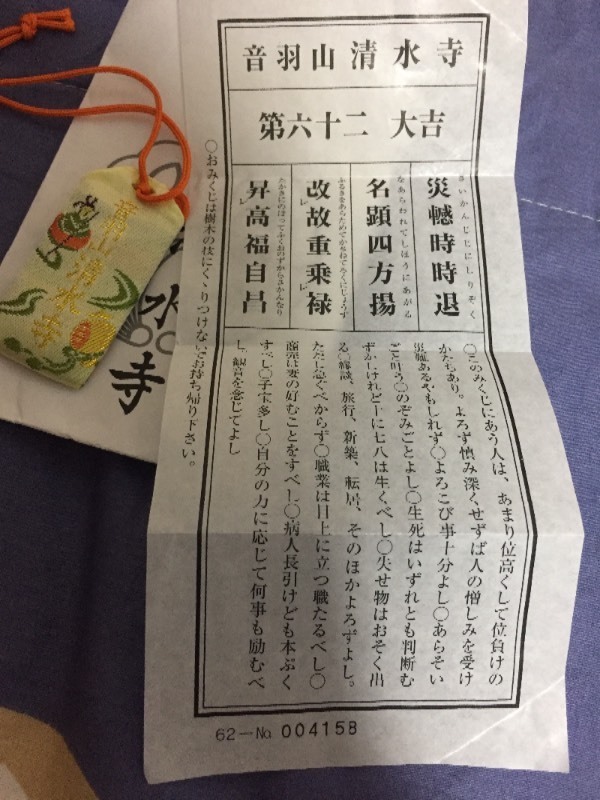 音羽山清水寺
第六十二 大吉
さいかんじじにしりぞく
災轗時時退
なあらわれてしほうにあがる
名顕四方揚
ふるきをあらためてかさねてろくにじょうず
改レ故重乗レ禄
たかきにのぼってふくおのずからさかんなり
昇レ高福自昌
〇このみくじにあう人は、あまり位高くして位負けの
かたちあり。よろず慎み深くせずば人の憎しみを受け
災難あるやもしれず〇よろこび事十分よし〇あらそい
ごと叶う〇のぞみごとよし〇生死はいずれとも判断む
ずかしけれど十に七八は生くべし〇失せ物はおそく出
る〇縁談、旅行、新築、転居、そのほかよろずよし。
ただし急ぐべからず〇職業は目上に立つ職たるべし〇
商売は妻の好むことをすべし〇病人長引けども本ぷく
すべし〇子宝多し〇自分の力に応じて何事も励むべ
し、観音を念じてよし
〇おみくじは樹木の枝にくゝりつけないでお持ち帰り下さい。
62—No. 004158
音羽山清水寺
水寺